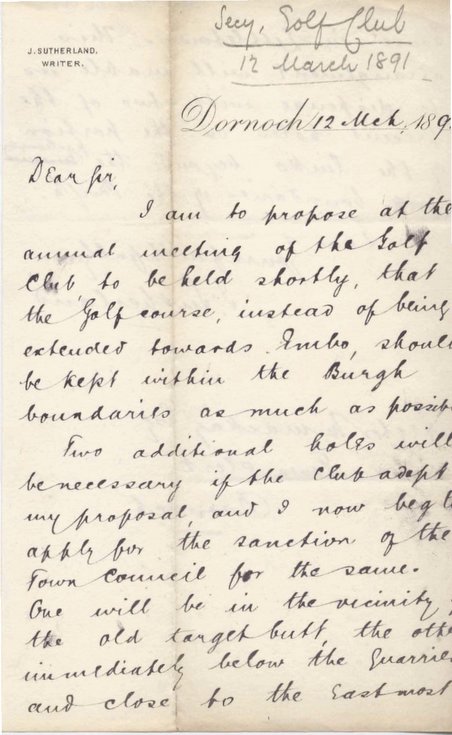 Secy, Golf Club
12 March 1891
J. SUTHERLAND,
WRITER.
Dornoch 12 Mch, 189
Dear Sir,
I am to propose at the
annual meeting of the Golf
Club to be held shortly, that
the Golf course, instead of being
extended towards Embo, shoul
be kept within the Burgh
boundaries as much as possib
Two additional holes will
be necessary if the Club adopt
my proposal, and I now beg t
apply for the sanction of the
Town Council for the same.
One will be in the vicinity
the old target butt, the oth
immediately below the Quarrie
and close to the Eastmost